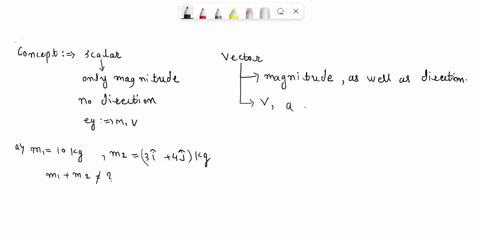 Concept :→ Scalar
only magnitude
no direction
eg :→ M, V
Vector
magnitude, as well as direction.
V, a.
a) m1 = 10 kg , m2 = (3î + 4ĵ) kg
m1 + m2 ≠ ?